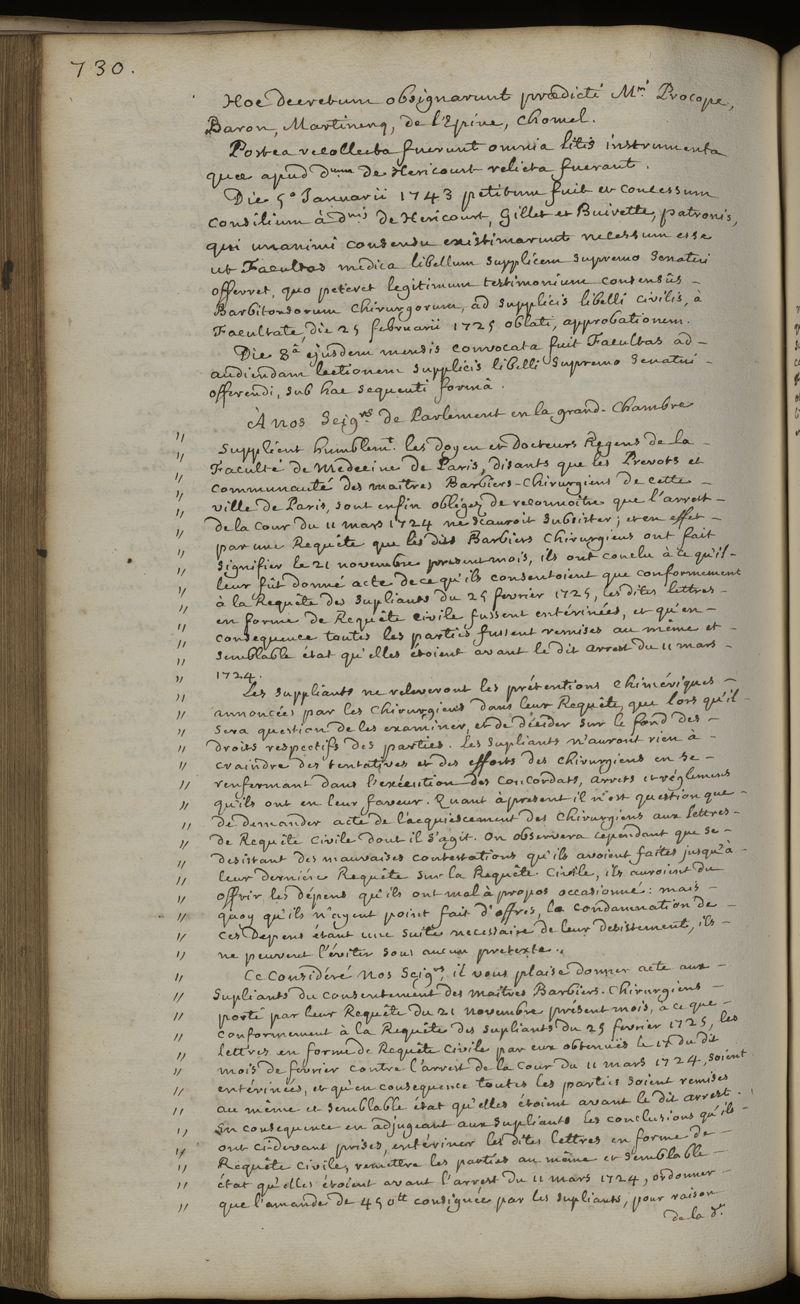 730.
Hoc decretum obsignarunt prædicti M.ri Procope,
Baron, Martinenq, de l'Epine, Chomel.
Postea recollecta fuerunt omnia litis instrumenta
quæ apud d.num de Hericourt relicta fuerant.
Die 5.a Januarii 1743 petitum fuit et concessum
consilium à d.nis de Hericourt, Gillet et Buirette, patronis,
qui unanimi consensu existimarunt necessum esse
ut Facultas medica libellum supplicem supremo Senatui
offerret, quo peteret legitimum testimonium consensûs -
Barbitonsorum Chirurgorum, ad supplicis libelli civilis, à
Facultate, die 25 februarii 1725 oblati, approbationem.
Die 8.a ejusdem mensis convocata fuit Facultas ad -
audiendam lectionem supplicis libelli supremo Senatui -
offerendi, sub hac sequenti formâ.
À Nos Seig.rs de Parlement en la grand. Chambre
" Supplient humblem.t les doyen et Docteurs Regens de la -
" Faculté de Medecine de Paris, disants que les Prevots et
" communauté des maitres Barbiers-Chirurgiens de cette -
" ville de Paris, sont enfin obligez de reconnoitre que l'arrest -
" de la cour du 11 mars 1724 ne sçauroit subsister; et en effet -
" par une Requête que les dits Barbiers Chirurgiens ont fait
" signifier le 21 novembre present mois, ils ont conclu à ce qu'il -
" leur fût donné acte de ce qu'ils consentoient que conformement
" à la Requête des supliants du 25 fevrier 1725, les dites lettres -
" en forme de Requête civile fussent entérinées, et qu'en -
" consequence toutes les parties fussent remises au même et -
" semblable état qu'elles étoient avant le dit arrest du 11 mars -
" 1724.
" Les suppliants ne releveront les prétentions chimériques -
" annoncées par les Chirurgiens dans leur Requête, que lors qu'il -
" sera question de les examiner, et de décider sur le fond des -
" droits respectifs des parties. Les supliants n'auront rien à -
" craindre des tentatives et des efforts des chirurgiens en se -
" renfermant dans l'exécution des concordats, arrets et réglements
" qu'ils ont en leur faveur. Quant à present il n'est question que -
" de demander acte de l'acquiescement des Chirurgiens aux lettres -
" de Requête civile dont il s'agit. On observera cependant que se -
" desistant des mauvaises contestations qu'ils avoient faites jusqu'à -
" leur derniére Requête sur la Requête civile, ils auroient du
" offrir les dépens qu'ils ont mal à propos occasionné: mais -
" quoy qu'ils n'ayent point fait d'offres, la condamnation de -
" ces dépens étant une suite necessaire de leur desistement, ils -
" ne peuvent l'éviter sous aucun pretexte.
" Ce Considéré Nos Seig.rs, il vous plaise donner acte aux -
" supliants du consentement des maitres Barbiers-Chirurgiens -
" porté par leur Requête du 21 novembre présent mois, à ce que -
" conformement à la Requête des supliants du 25 fevrier 1725, les
" lettres en forme de Requête civile par eux obtenües le 17 du dit
" mois de fevrier contre l'arrest de la cour du 11 mars 1724, soient
" entérinées, et qu'en consequence toutes les parties soient remises
" au même et semblable état qu'elles étoient avant le dit arrest.
" En consequence en adjugeant aux supliants les conclusions qu'ils -
" ont ci-devant prises, entériner les dites lettres en forme de -
" Requête civile, remettre les parties au même et semblable -
" état qu'elles étoient avant l'arrest du 11 mars 1724, ordonner -
" que l'amande de 450tt consignée par les supliants, pour raison
de la d.e